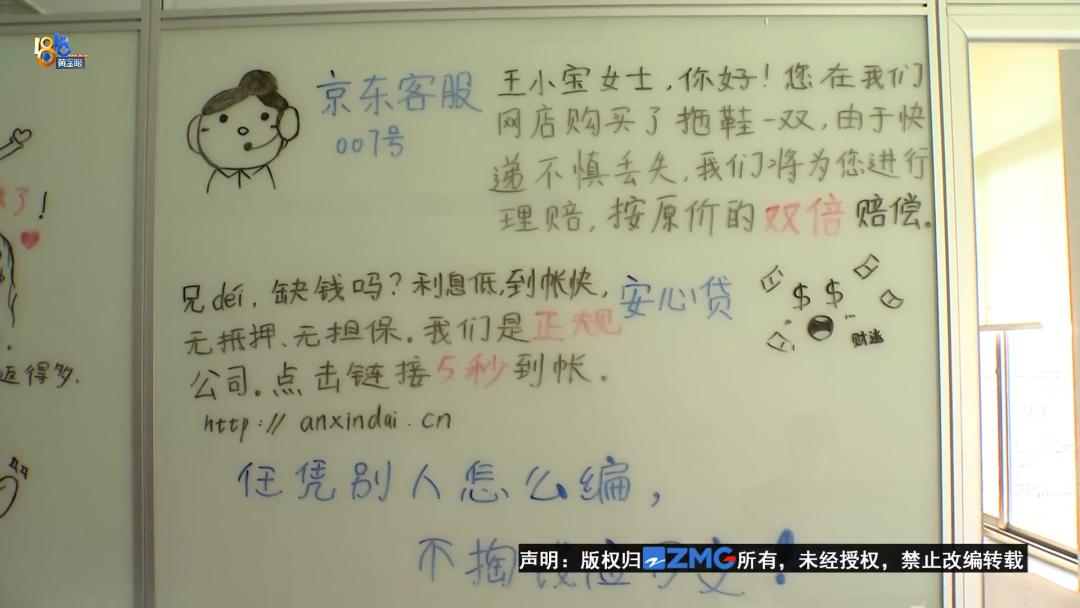 1818
黄金眼
京东客服
007号
王小宝女士，你好！您在我们
网店购买了拖鞋一双，由于快
递不慎丢失，我们将为您进行
理赔，按原价的双倍赔偿。
了！
返得多.
兄déi，缺钱吗？利息低,到帐快，
安心贷
无抵押、无担保。我们是正规
公司。点击链接5秒到帐.
http://anxindai.cn
$ $
财迷
任凭别人怎么编，
不掏
！
声明：版权归ZMG所有，未经授权，禁止改编转载